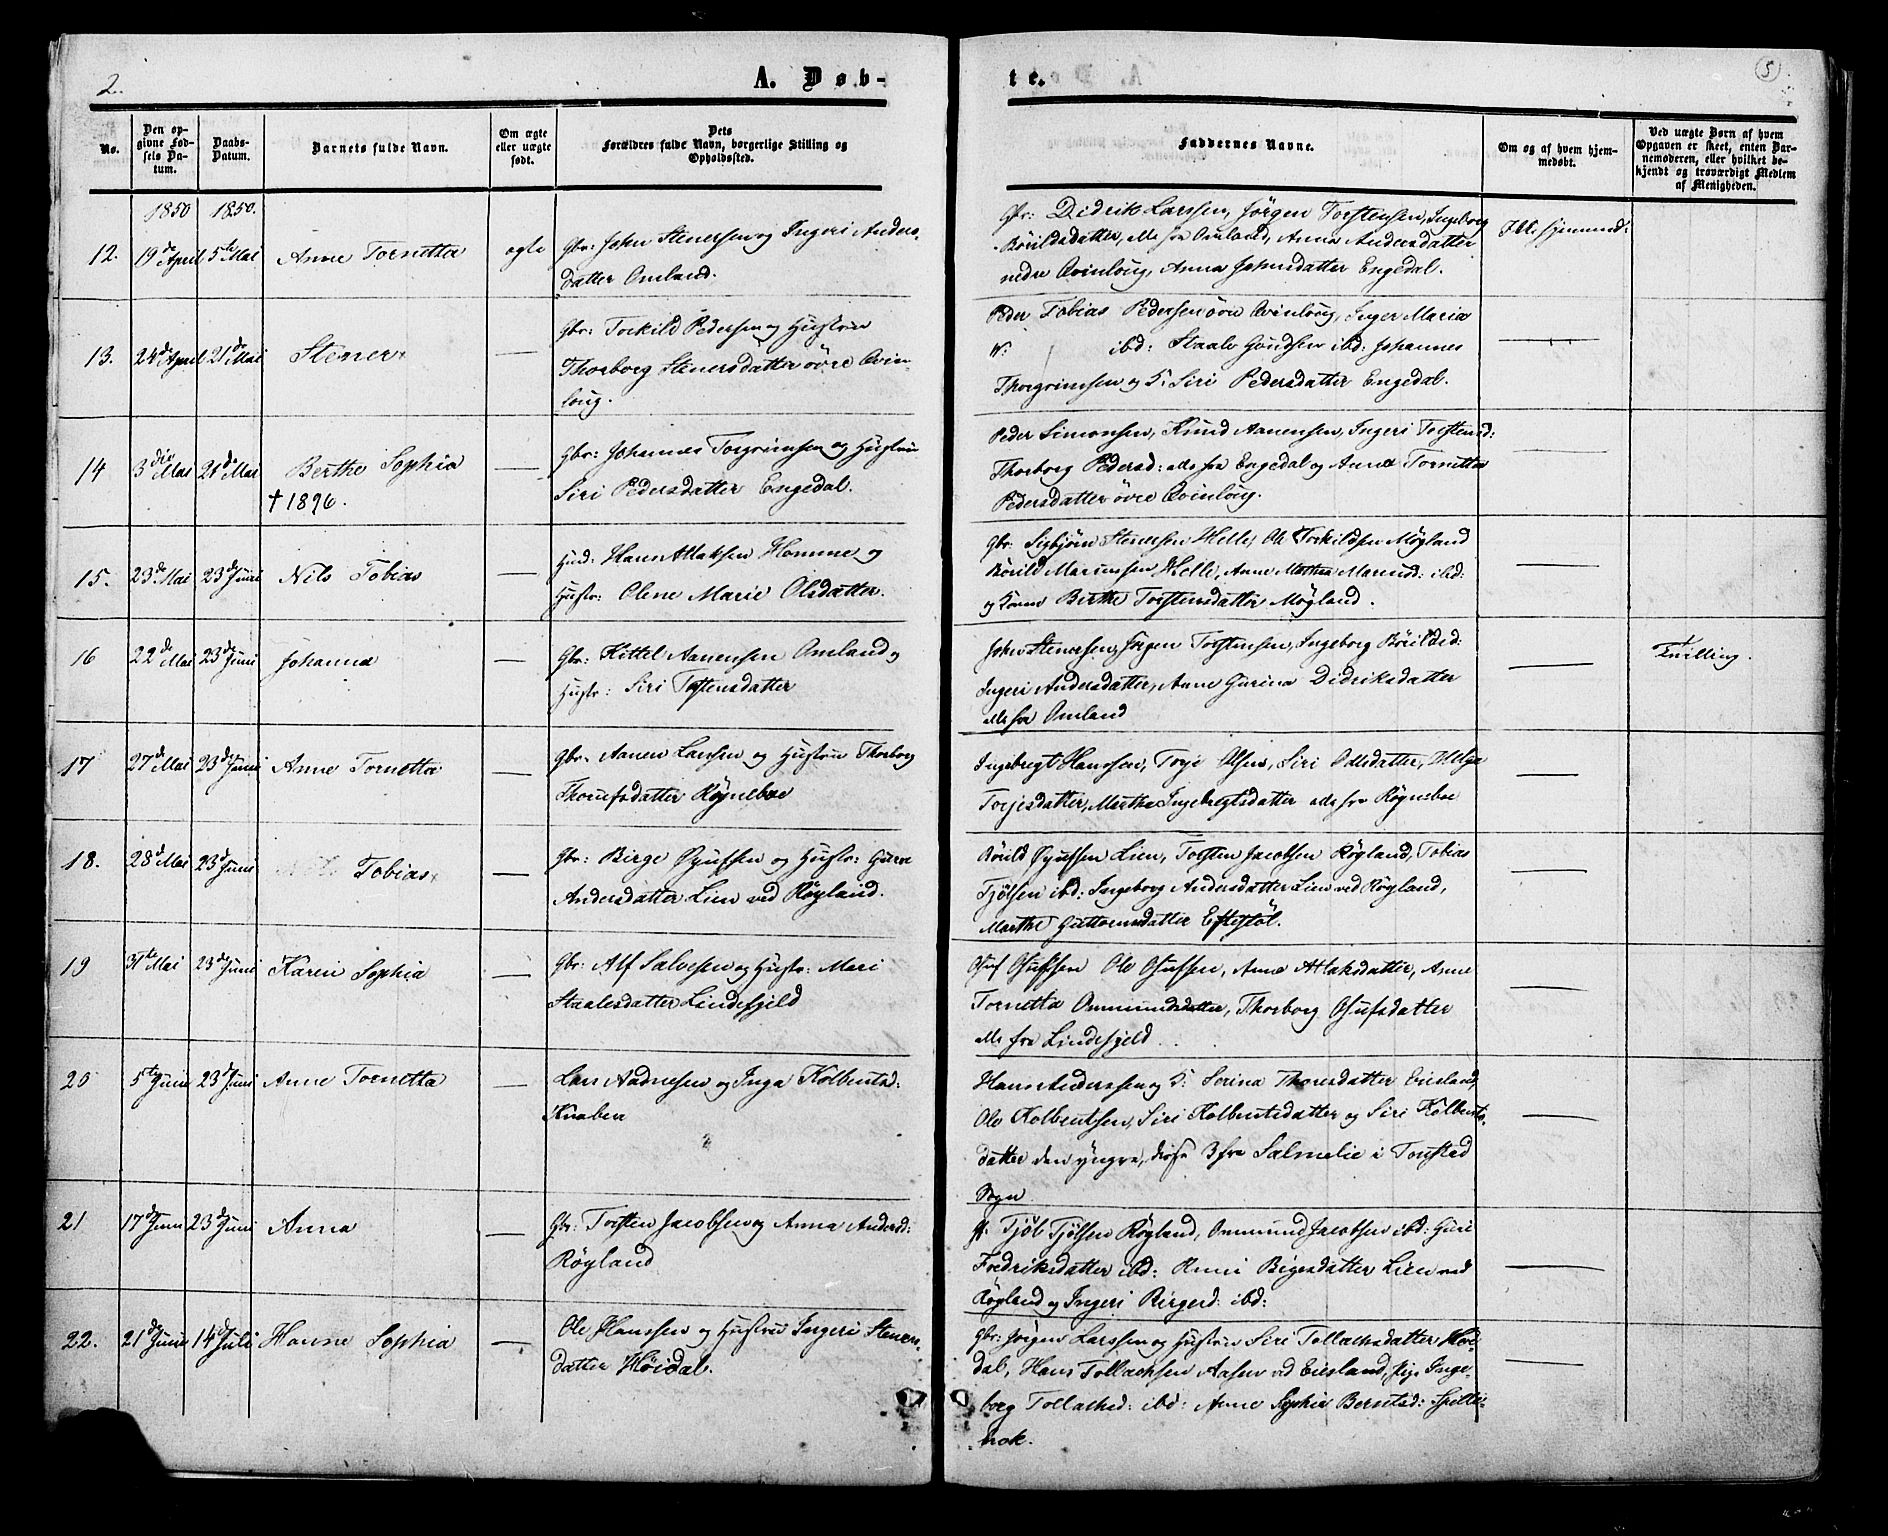 2.
A. Døb-
te.
5
No.
Den op-
givne Fød-
sels Da-
tum.
Daabs-
Datum.
Barnets fulde Navn.
Om ægte
eller uægte
født.
Dets
Forældres fulde Navn, borgerlige Stilling og
Opholdssted.
Faddernes Navne.
Om og af hvem hjem-
medøbt.
Ved uægte Børn af hvem
Opgaven er skeet, enten Bar-
nemoderen, eller hvilket be-
kjendt og troværdigt Medlem
af Menigheden.
1850 1850.
12. 19de April 5te Mai Anne Tornetta ægte
Gbr: John Stenersen og Ingeri Anders-
datter Omland.
Gbr: Didrik Larssen, Jörgen Torstensen, Ingeborg
Böuildsdatter, alle fra Omland, Anna Andersdatter
nedre Qvinloug, Anna Johnsdatter Engedal.
13. 24de April 21de Mai Stener —
Gbr: Torkild Pedersen og Hustru
Thorborg Stenersdatter övre Qvin-
loug.
Peder Tobias Pedersen övre Qvinloug, Inger Maria
ibd: Staale Gundsen ibd: Johannes
Thorgrimsen og K. Siri Pedersdatter Engedal.
14 3die Mai 21de Mai Berthe Sophia —
† 1896.
Gbr: Johannes Torgrimsen og Hustru
Siri Pedersdatter Engedal.
Peder Simonsen, Knud Aanensen, Ingeri Torstensd:
Thorborg Pedersd: alle fra Engedal og Anna Tornetta
Pedersdatter övre Qvinloug.
15. 23de Mai 23de Juni Nils Tobias —
Hud: Hans Atlaksen Homme og
Hustr: Olene Marie Olsdatter.
Gbr: Sigbjörn Stenersen Helle, Ole Torkildsen Møgland
Böuild Mariusen Helle, Anne Marthea Mariusd: ibd:
og Kone Berthe Torstensdatter Møgland.
16 22de Mai 23de Juni Johanna —
Gbr: Kittel Aanensen Omland og
Hustr: Siri Tostensdatter
John Stenersen, Jörgen Torstensen, Ingeborg Böuildsd:
Ingeri Andersdatter, Anne Gurina Didriksdatter
alle fra Omland
Tvilling.
17 27de Mai 23de Juni Anne Tornetta —
Gbr. Aanen Larssen og Hustru Thorborg
Thorufsdatter Røyneboe
Ingebregt Hanssen, Torje Olsen, Siri Odlsdatter, Helga
Torjesdatter, Marthe Ingebregtsdatter alle fra Røyneboe
18. 28d Mai 23d Juni Nils Tobias —
Gbr: Birge Gjufsen og Hustr: Gurve
Andersdatter Lien ved Røyland.
Böuild Gjufsen Lien, Torsten Jacobsen Røyland, Tobias
Tjölsen ibd: Ingeborg Andersdatter Lien ved Røyland,
Marthe Guttormsdatter Eftestöl.
19 31te Mai 23de Juni Karen Sophia —
Gbr: Alf Salvesen og Hustr: Mari
Staalesdatter Lindefjeld
Osuf Osufsen Ole Osufsen, Anne Atlaksdatter, Anne
Tornetta Ommundsdatter, Thorborg Osufsdatter
alle fra Lindefjeld
20 5te Juni 23d Juni Anne Tornetta —
Lars Aadnesen og Inga Kolbentsd:
Knaben
Hans Anderssen og K. Serina Thoresdatter Eiesland,
Ole Kolbentsen, Siri Kolbentsdatter og Siri Kolbents-
datter den yngre, disse 3 fra Salmelie i Tonstad
Sogn
21 17de Juni 23d Juni Anna —
Gbr: Torsten Jacobsen og Anna Andersd:
Røyland
Tjöl Tjölsen Røyland, Ommund Jacobsen ibd: Guri
Fredriksdatter ibd: Anni Bigesdatter Lien ved
Røyland og Ingeri Birgesd: ibd:
22. 21de Juni 14d Juli Hanne Sophia —
Ole Hanssen og Hustru Ingeri Steners-
datter Höidal.
Gbr: Jörgen Larssen og Hustru Siri Tollachsdatter Höi-
dal, Hans Tollachsen Aasen ved Eiesland, Pige Inge-
borg Tollachsd: ibd: Anne Sophie Berntsd: Spille-
brok.